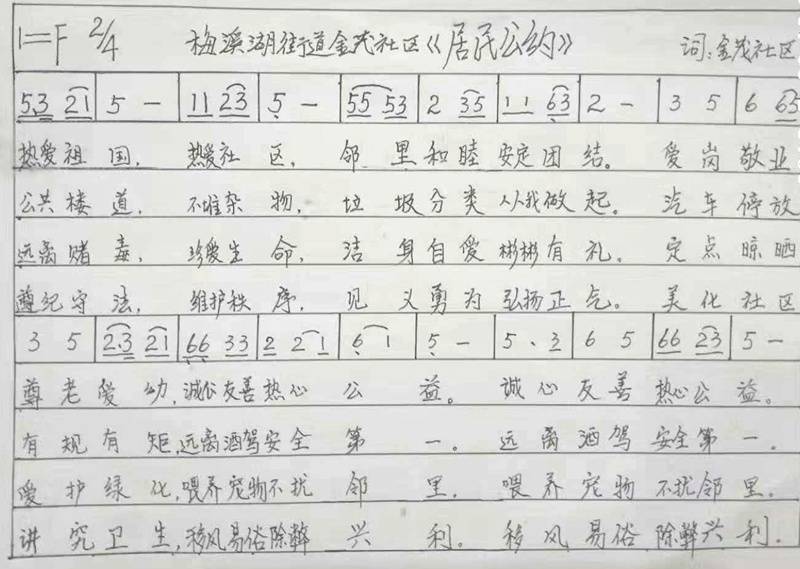 1=F 2/4 梅溪湖街道金茂社区《居民公约》 词:金茂社区
5.3 21 | 5 - | 11 23 | 5 - | 55 53 | 2 35 | 11 63 | 2 - | 3 5 | 6 65
热爱祖国, 热爱社区, 邻里和睦安定团结。 爱岗敬业
公共楼道, 不堆杂物, 垃圾分类从我做起。 汽车停放
远离赌毒, 珍爱生命, 洁身自爱彬彬有礼。 定点晾晒
遵纪守法, 维护秩序, 见义勇为弘扬正气。 美化社区
3 5 | 2.3 21 | 66 33 | 2 2 1 | 6 1 | 5 - | 5. 3 | 6 5 | 66 23 | 5 -
尊老爱幼,诚心友善热心公益。 诚心友善热心公益。
有规有矩,远离酒驾安全第一。 远离酒驾安全第一。
爱护绿化,喂养宠物不扰邻里。 喂养宠物不扰邻里。
讲究卫生,移风易俗除弊兴利。 移风易俗除弊兴利。